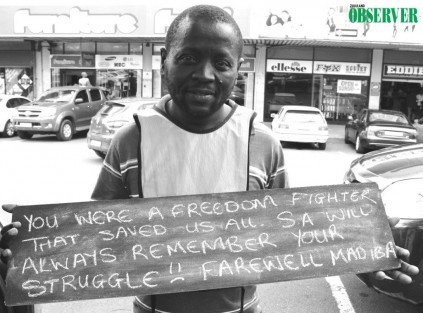 ZULULAND
OBSERVER
furniture
ellesse
YOU WERE A FREEDOM FIGHTER
THAT SAVED US ALL. SA WILL
ALWAYS REMEMBER YOUR
STRUGGLE!! FAREWELL MADIBA